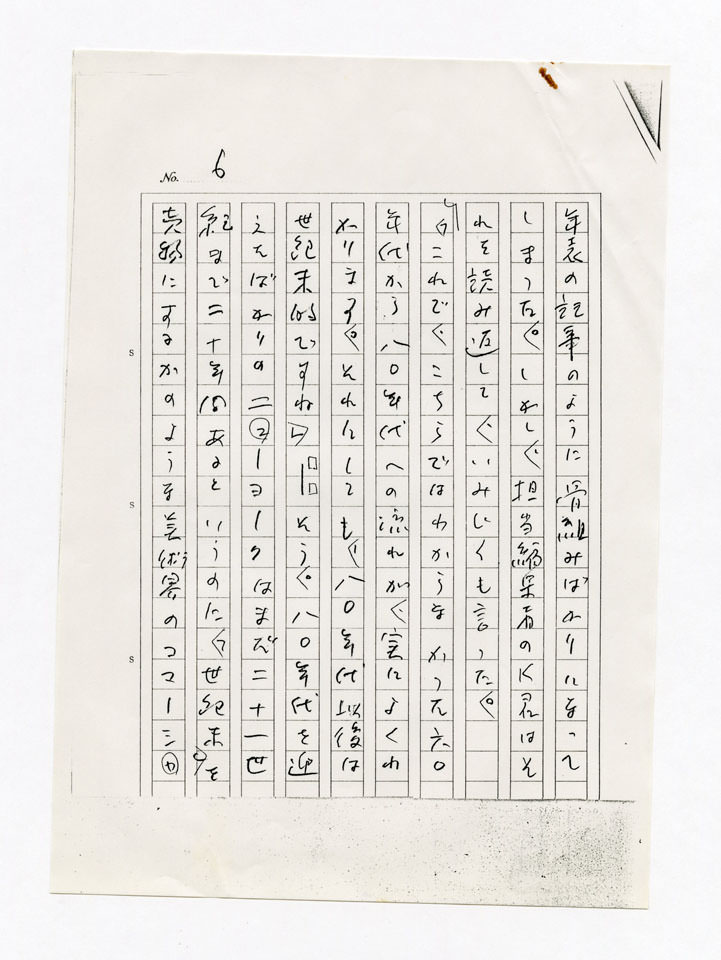 No. 6
年表の記事のように骨組みばかりになって
しまった。しかし、担当編集者のK君はそ
れを読み返して、いみじくも言った。
「これで、こちらではわからなかった六〇
年代から八〇年代への流れが、実によくわ
かります。それにしても、八〇年代以後は
世紀末的ですね」――そう。八〇年代を迎
えたばかりのニューヨークはまだ二十一世
紀まで二十年間あるというのに、「世紀末」を
売物にするかのような美術界のコマーシャ
S
S
S